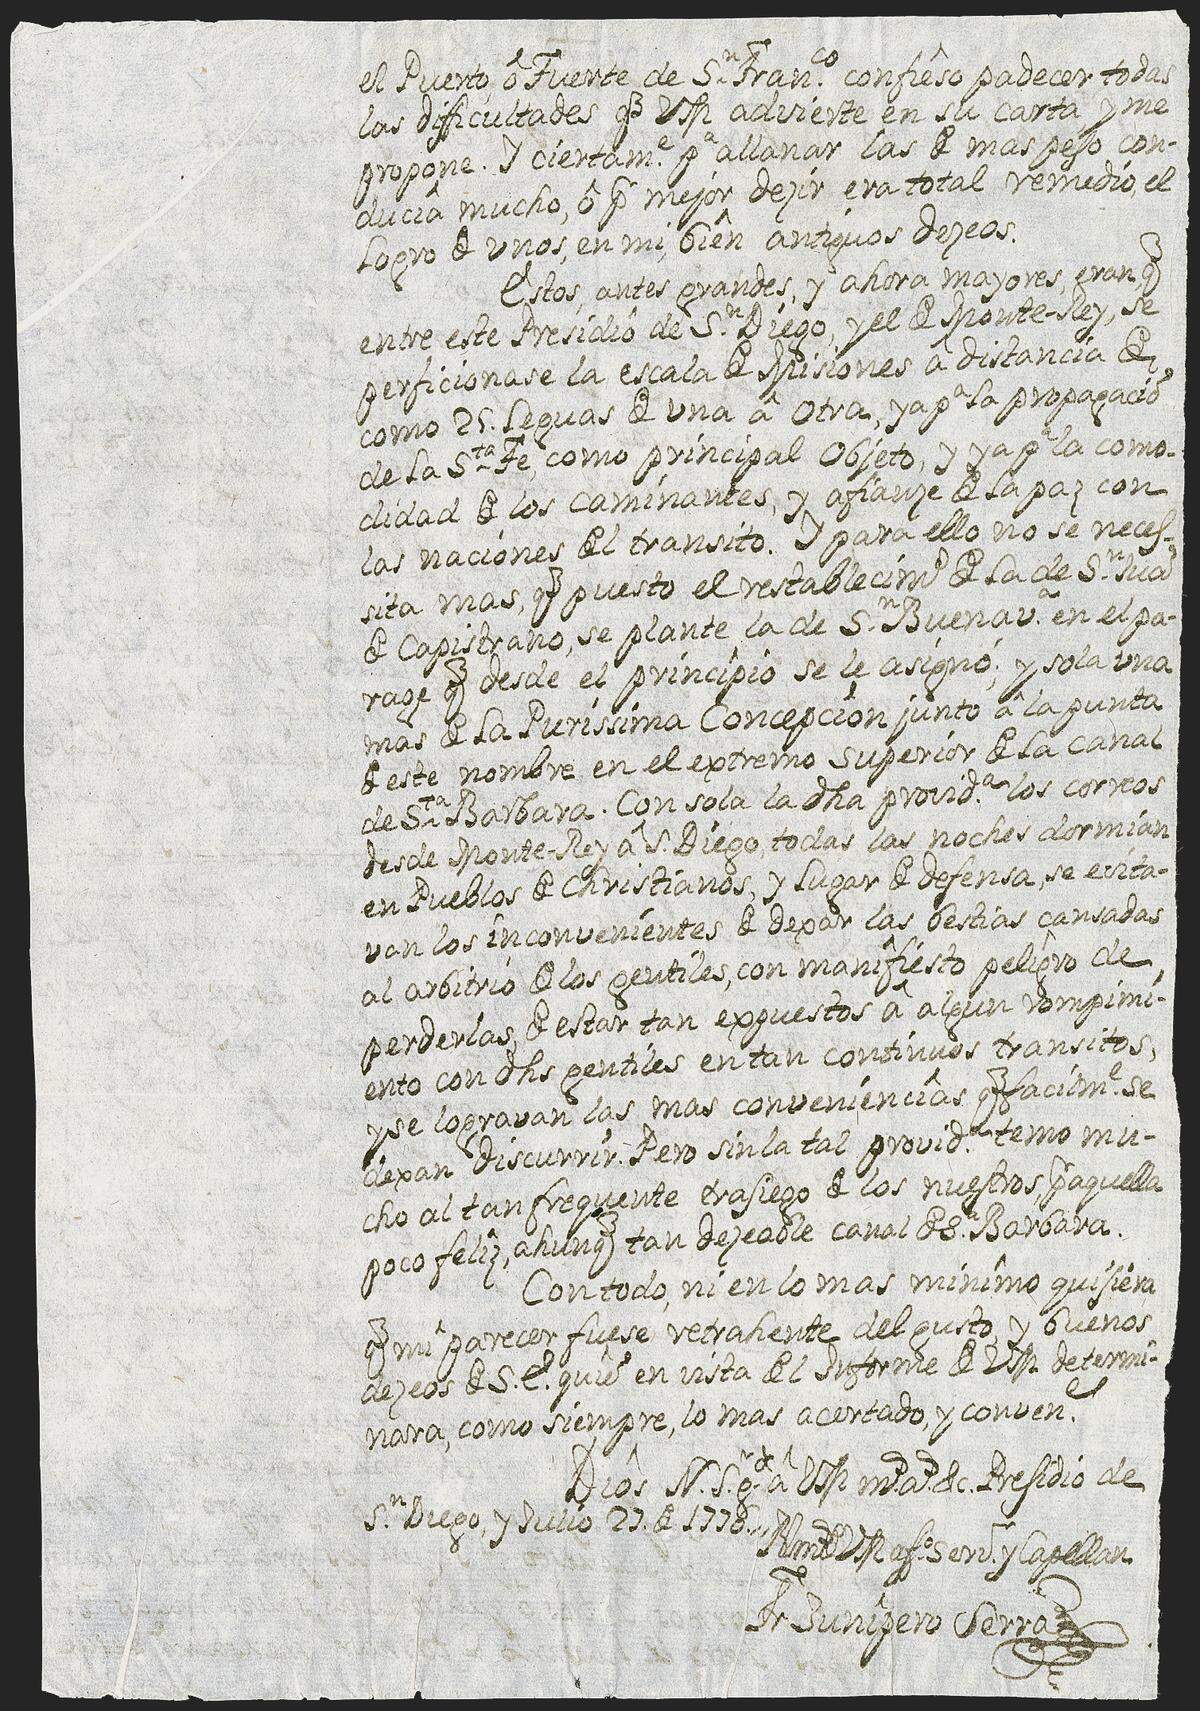 el Puerto, ô Fuerte de S.n Fran.co confiêso padecer todas
las difficultades q̃ VSR advierte en su carta y me
propone. Y ciertam.e p.a allanar las de mas peso con-
duciâ mucho, ô p.r mejor dezir era total remedio, el
logro de unos, en mi, biên antiguos dezeos.
Estos, antes grandes, y ahora mayores, eran, q̃
entre este Presidiô de S.n Diego, y el de Monte-Rey, se
perficionase la escala de Misiones â distanciâ de
como 25. leguas de una â otra, ya p.a la propagaciõ
de la S.ta Fe, como principal objeto, y ya p.a la como-
didad de los caminantes, y afianze de la paz con
las naciônes del transito. Y para ello no se neces-
sita mas, q̃ puesto el restablecim.o de la de S.n Juã
de Capistrano, se plante la de S.n Buenav.a en el pa-
rage q̃ desde el principio se le asignó; y sola una
mas de la Purissima Concepciôn junto â la punta
de este nombre en el extremo superiôr de la canal
de S.ta Barbara. Con sola la dha provid.a los correos
desde Monte-Rey â S. Diego, todas las noches dormian
en Pueblos de Christianos, y lugar de defensa, se evita-
van los inconvenientes de dexar las bestias cansadas
al arbitrio de los gentiles, con manifiêsto peligro de
perderlas, de estar tan expuestos â algun rompimi-
ento con dhs gentiles en tan continuos transitos,
y se logravan las mas conveniênciâs q̃ facilm.e se
dexan discurrir. Pero sin la tal provid.a temo mu-
cho al tan frequente trasiego de los nuestros, p.r aquella
poco feliz, ahunq̃ tan dezeable canal de S.a Barbara.
Con todo, ni en lo mas minimo quisiera
q̃ mi parecer fuese retrahente del gusto, y buenos
dezeos de S.E. quiẽ en vista del Informe de VSR determi-
nara, como siempre, lo mas acertado, y conven.e
Diôs N. S. g.de â VSR m.s a.s &c. Presidio de
S.n Diego, y Julio 27. de 1776.
VSR af.o serv.r y Capellan
Fr Junipero Serra